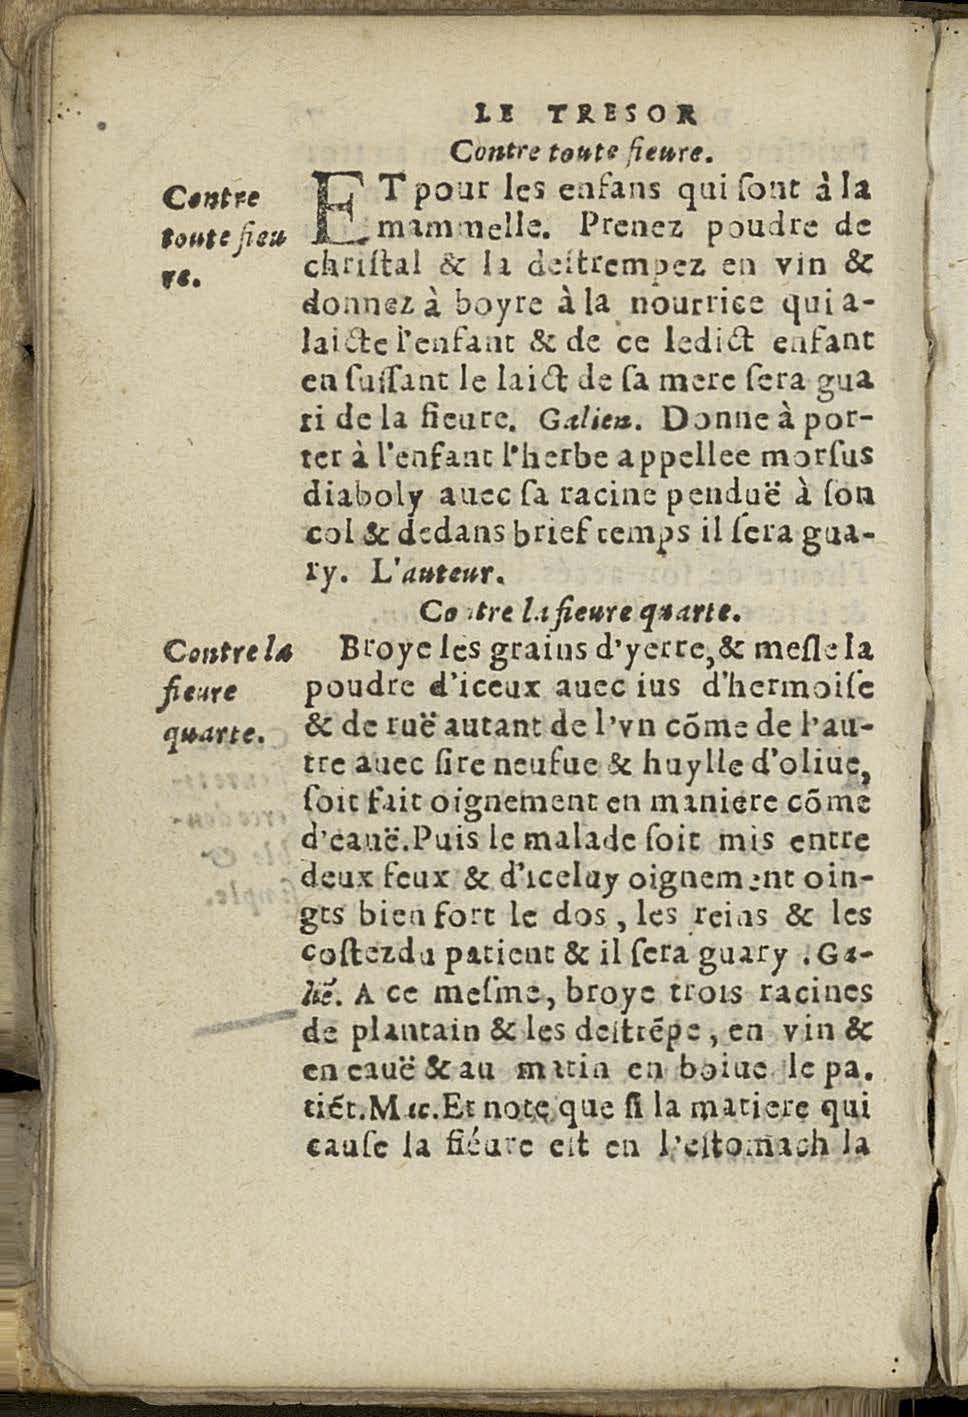 LE TRESOR
Contre toute fieure.
Contre
toute fieu
re.
ET pour les enfans qui ſont à la
mammelle. Prenez poudre de
chriſtal & la deſtrempez en vin &
donnez à boyre à la nourrice qui a-
laicte l'enfant & de ce ledict enfant
en ſuſſant le laict de ſa mere ſera gua
ri de la fieure. Galien. Donne à por-
ter à l'enfant l'herbe appellee morſus
diaboly auec ſa racine penduë à ſon
col & dedans brief temps il ſera gua-
ry. L'auteur.
Contre la fieure quarte.
Contre la
fieure
quarte.
Broye les grains d'yerre, & meſle la
poudre d'iceux auec ius d'hermoiſe
& de ruë autant de l'vn cõme de l'au-
tre auec ſire neufue & huylle d'oliue,
ſoit fait oignement en maniere cõme
d'eauë. Puis le malade ſoit mis entre
deux feux & d'iceluy oignement oin-
gts bien fort le dos, les reins & les
coſtez du patient & il ſera guary. Ga-
liẽ. A ce meſme, broye trois racines
de plantain & les deſtrẽpe, en vin &
en eauë & au matin en boiue le pa.
tiẽt. Mac. Et note que ſi la matiere qui
cauſe la fiéure eſt en l'eſtomach la